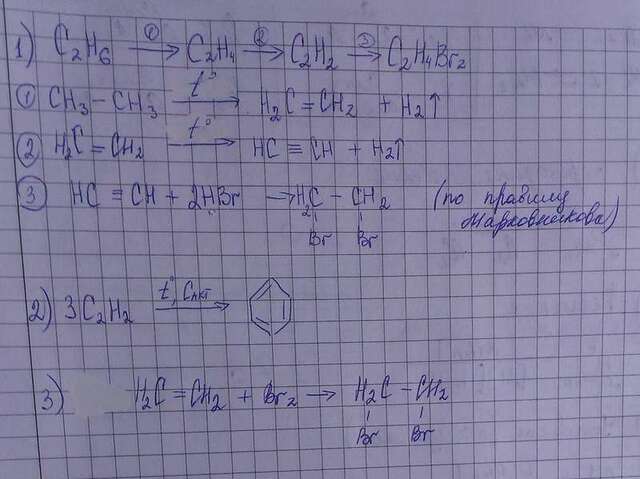 1) C₂H₆ —①→ C₂H₄ —②→ C₂H₂ —③→ C₂H₄Br₂
① CH₃–CH₃ —t°→ H₂C=CH₂ + H₂↑
② H₂C=CH₂ —t°→ HC≡CH + H₂↑
③ HC≡CH + 2HBr → H₂C–CH₂ (по правилу
Br Br Марковникова)
2) 3C₂H₂ —t°, Cакт→
3) H₂C=CH₂ + Br₂ → H₂C–CH₂
Br Br